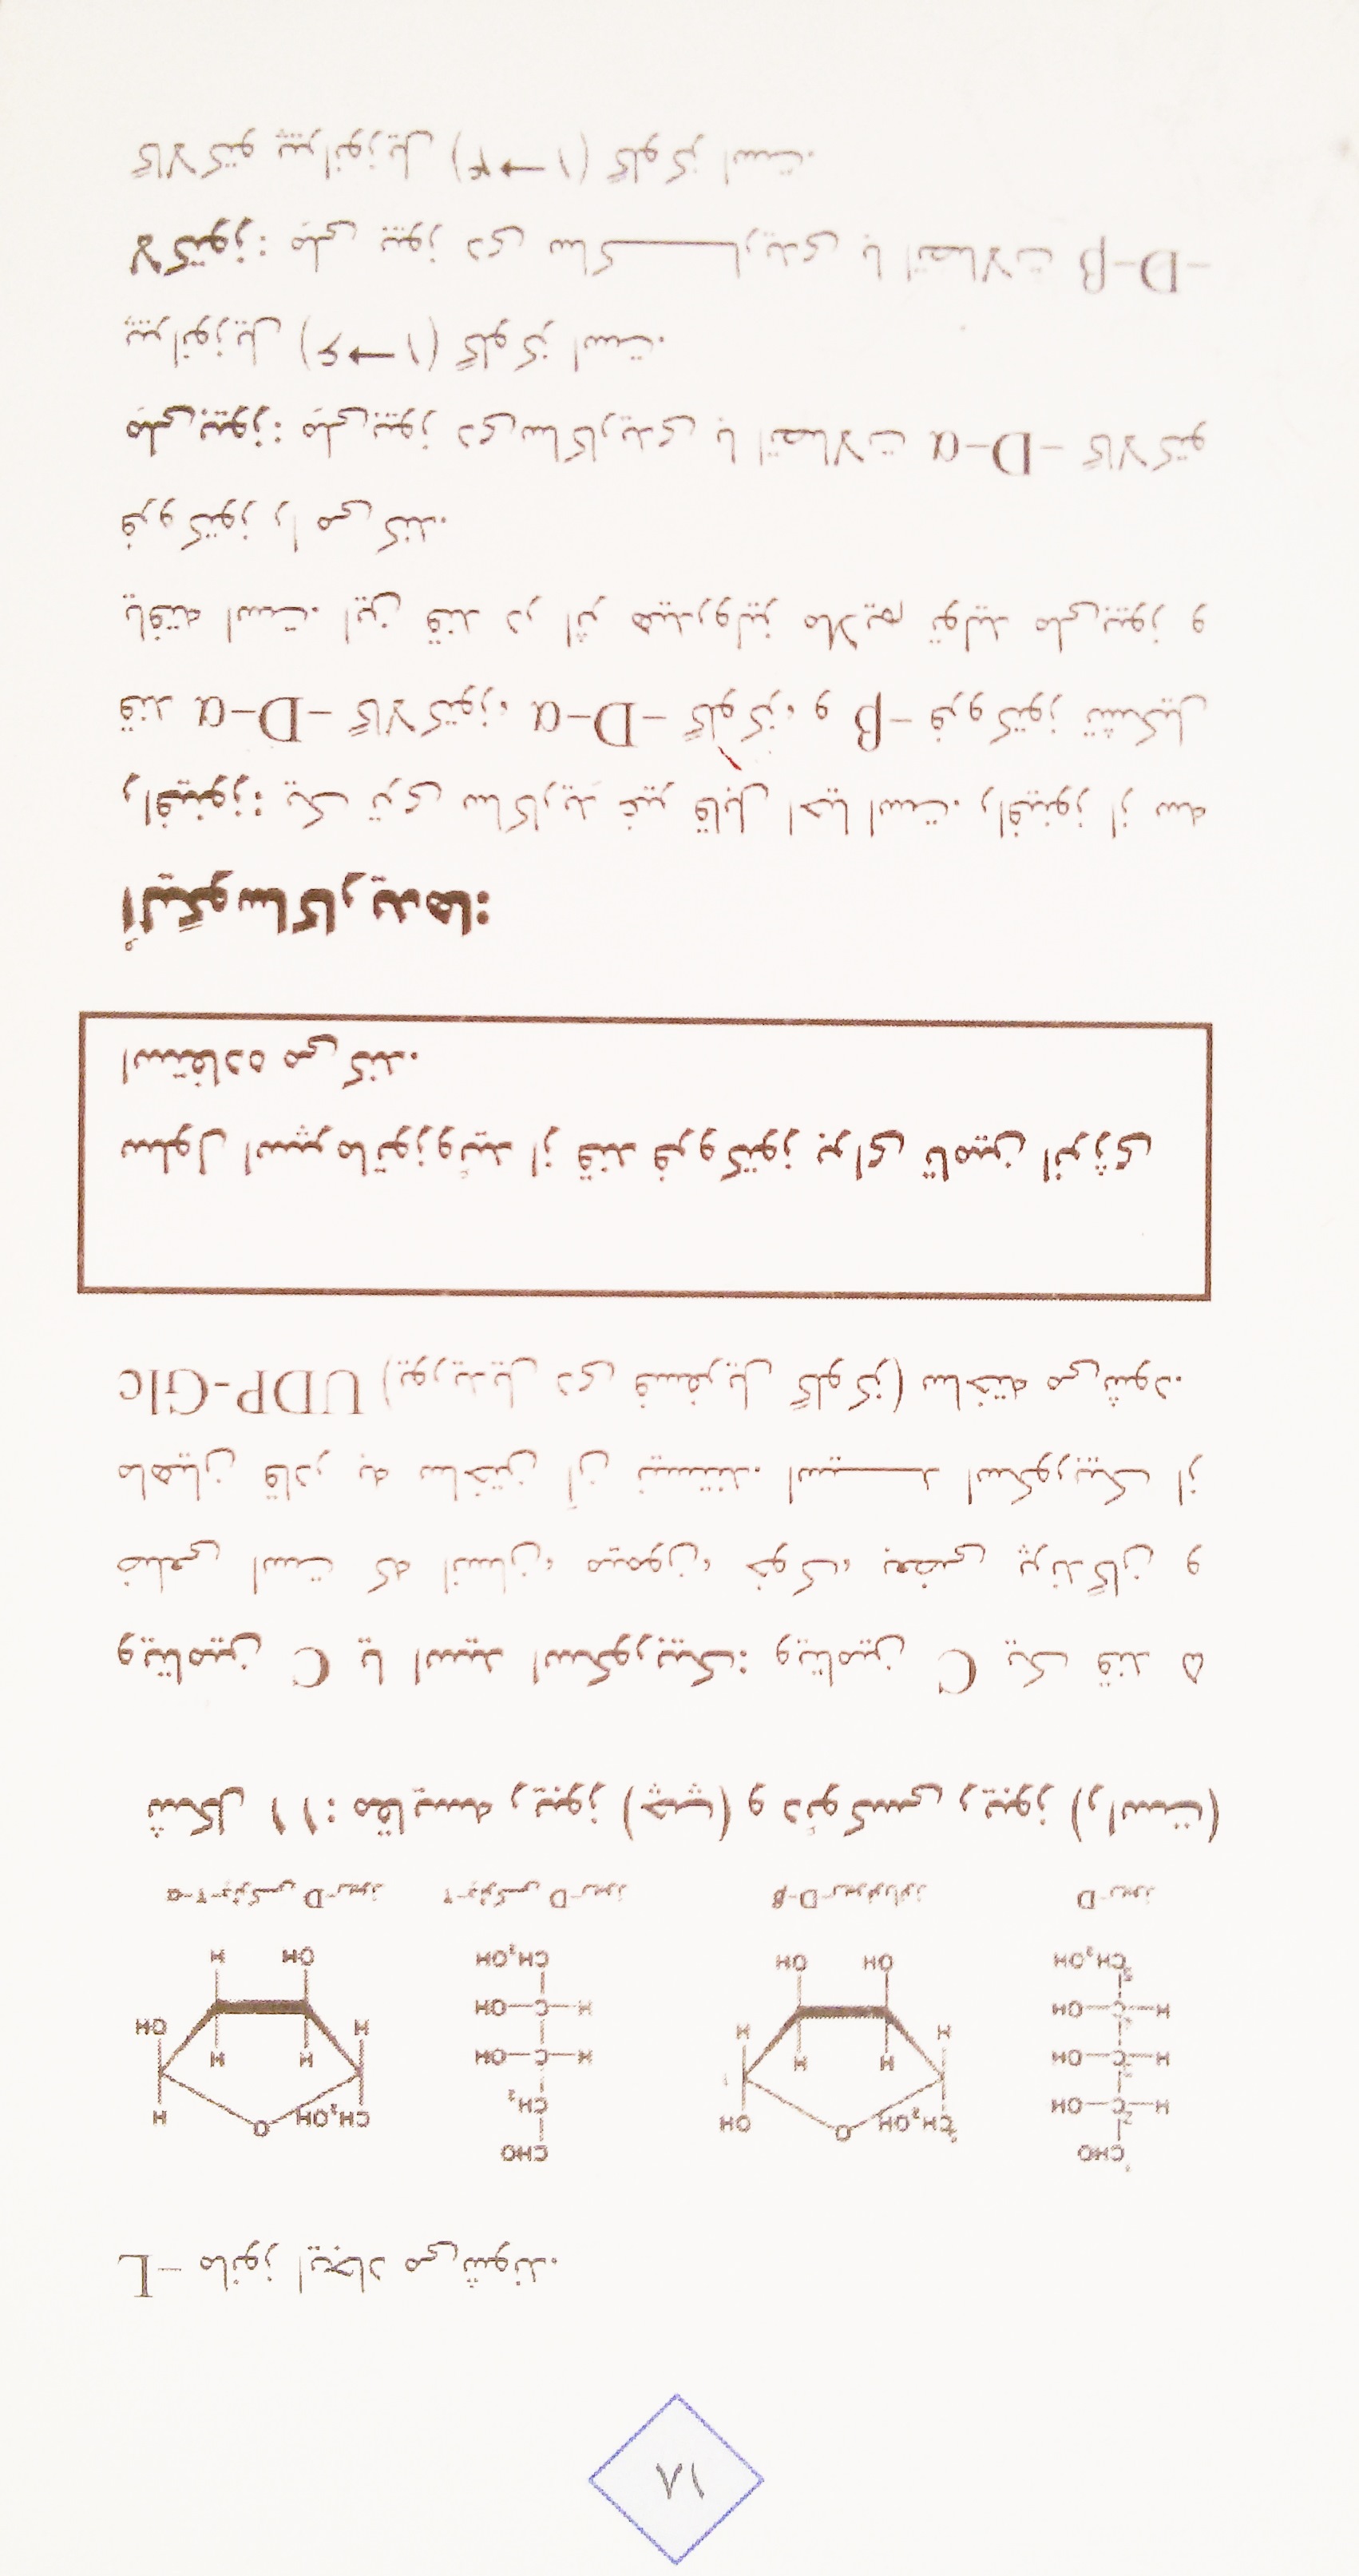 ۱۸
L- مانوز ایجاد می‌شوند.
CHO CHO
H—C—OH CH₂OH O OH CH₂ CH₂OH O H
H—C—OH H H H—C—OH H H
H—C—OH H H H—C—OH H OH
CH₂OH OH OH CH₂OH OH H
D-ریبوز β-D-ریبوفورانوز ۲-دئوکسی D-ریبوز α-۲-دئوکسی D-ریبوز
شکل ۱۱: مقایسه ریبوز (چپ) و دئوکسی ریبوز (راست)
ویتامین C یا اسید اسکوربیک: ویتامین C یک قند ۵
ضلعی است که انسان، میمون، خوک، بعضی پرندگان و
ماهیان قادر به ساختن آن نیستند. اسیـــد اسکوربیک از
UDP-Glc (یوریدیل دی فسفریل گلوکز) ساخته می‌شود.
سلول اسپرماتوزوئید از قند فروکتوز برای تامین انرژی
استفاده می‌کند.
اُلیگوساکاریدها:
رافینوز: یک تری ساکاریدِ غیر قابل احیا است. رافینوز از سه
قند α-D- گالاکتوز، α-D- گلوکز، و β- فروکتوز تشکیل
یافته است. این قند در اثر هیدرولیز ملایم تولید ملی‌بیوز و
فروکتوز را می‌کند.
مِلی‌بیوز: مِلی‌بیوز دی‌ساکاریدی با اتصالات α-D- گالاکتو
پیرانوزیل (۶→۱) گلوکز است.
لاکتوز: مِلی بیوز دی ساکـــــاریدی با اتصالات β-D-
گالاکتو پیرانوزیل (۴→۱) گلوکز است.